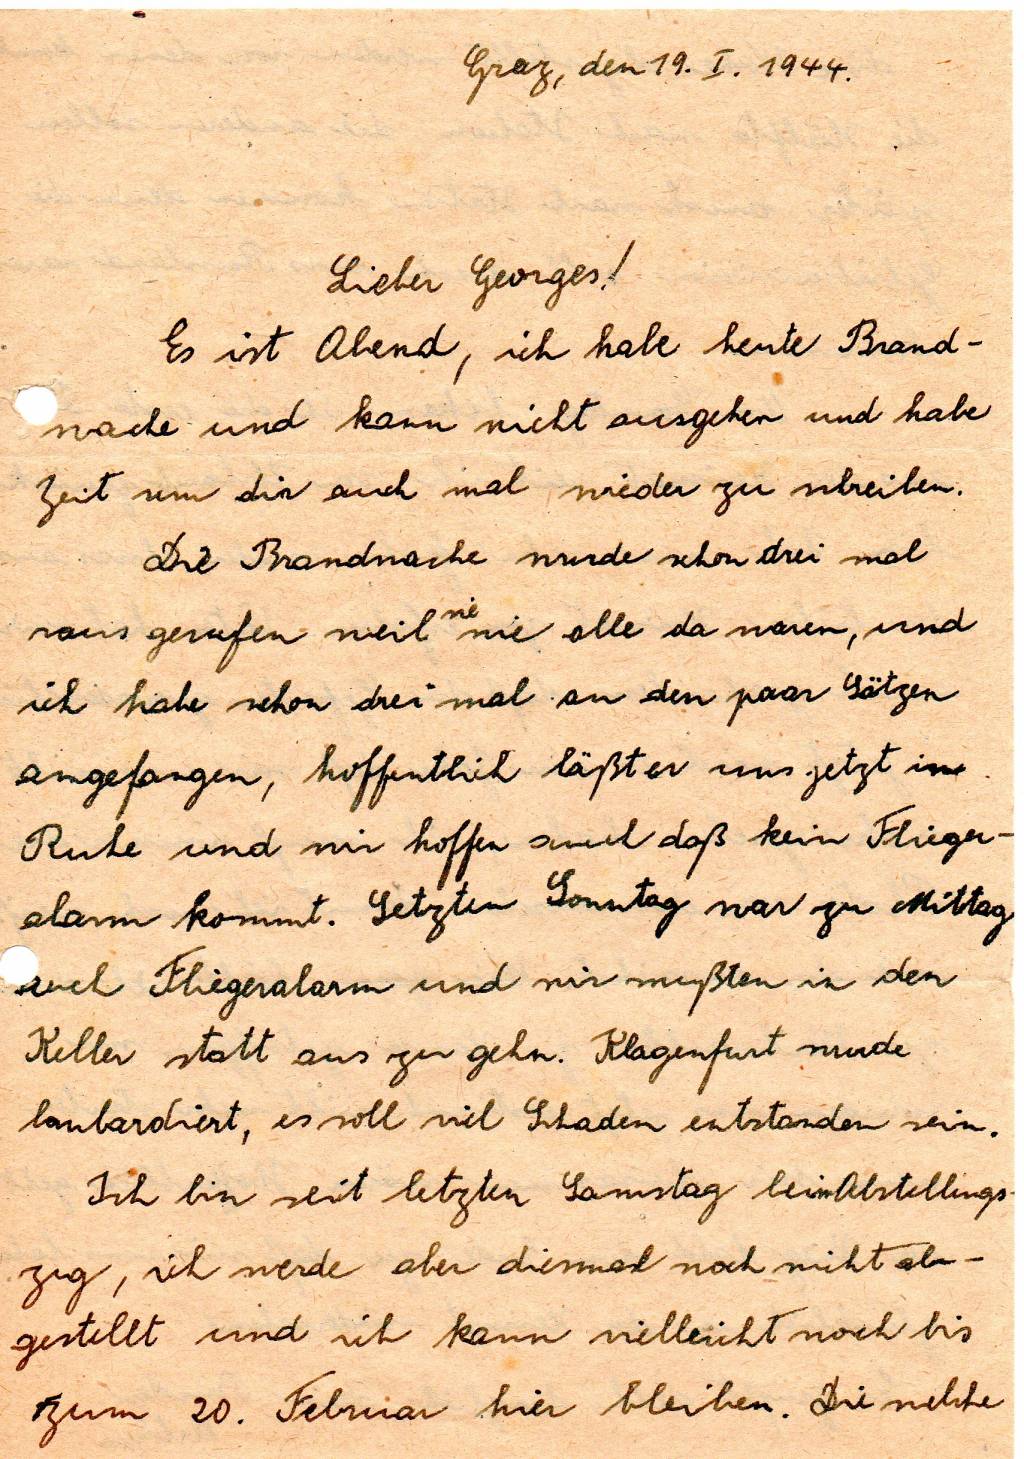 Graz, den 19. I. 1944.
Lieber Georges!
Es ist Abend, ich habe heute Brand-
wache und kann nicht ausgehen und habe
Zeit um dir auch mal wieder zu schreiben.
Die Brandwache wurde schon drei mal
raus gerufen weil sie nie alle da waren, und
ich habe schon drei mal an den paar Sätzen
angefangen, hoffentlich läßt er uns jetzt in
Ruhe und wir hoffen auch daß kein Flieger-
alarm kommt. Letzten Sonntag war zu Mittag
auch Fliegeralarm und wir mußten in den
Keller statt aus zu gehn. Klagenfurt wurde
bonbardiert, es soll viel Schaden entstanden sein.
Ich bin seit letzten Samstag beim Abstellings-
zug, ich werde aber diesmal noch nicht ab-
gestellt und ich kann vielleicht noch bis
zum 20. Februar hier bleiben. Die welche